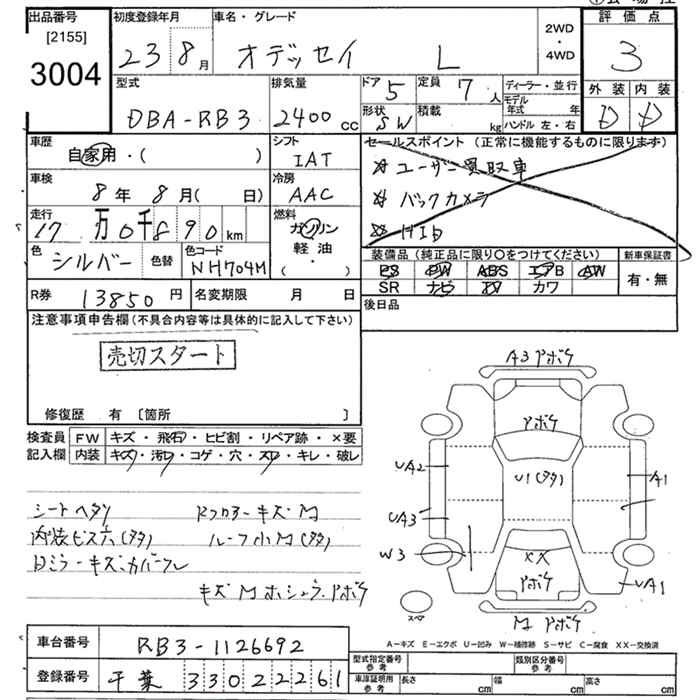 出品番号
[2155]
3004
初度登録年月
23 8月
車名・グレード
オデッセイ L
2WD
・
4WD
評価点
3
型式
DBA-RB3
排気量
2400 cc
ドア 5
定員 7人
形状 SW
積載 kg
ディーラー・並行
モデル年式 年
ハンドル 左・右
外装 内装
D D
車歴
自家用・( )
シフト
IAT
セールスポイント (正常に機能するものに限ります)
☆ユーザー買取車
☆バックカメラ
☆HID
車検
8年 8月( 日)
冷房
AAC
走行
17万0千890km
燃料
ガソリン
軽油・
( ・ )
色
シルバー
色替
色コード
NH704M
装備品 (純正品に限り○をつけてください)
新車保証書
PS PW ABS エアB AW
SR ナビ TV カワ
有・無
R券
13850円
名変期限 月 日
後日品
注意事項申告欄 (不具合内容等は具体的に記入して下さい)
売切スタート
修復歴 有 〔箇所 〕
検査員
記入欄
FW キズ・飛石・ヒビ割・リペア跡・×要
内装 キズ・汚れ・コゲ・穴・スレ・キレ・破レ
シートヘタリ
内装ビス穴(タタ) ルーフ小M(タタ)
A3 アボキ
アボキ
UA2
U1(タタ)
A1
UA3
W3
XX
アボキ
UA1
スペア
M アボキ
A-キズ E-エクボ U-凹み W-補修跡 S-サビ C-腐食 XX-交換済
車台番号
RB3-1126692
登録番号
千葉 330 2261
型式指定番号
参考
類別区分番号
参考
車庫証明用
参考
長さ cm
幅 cm
高さ cm